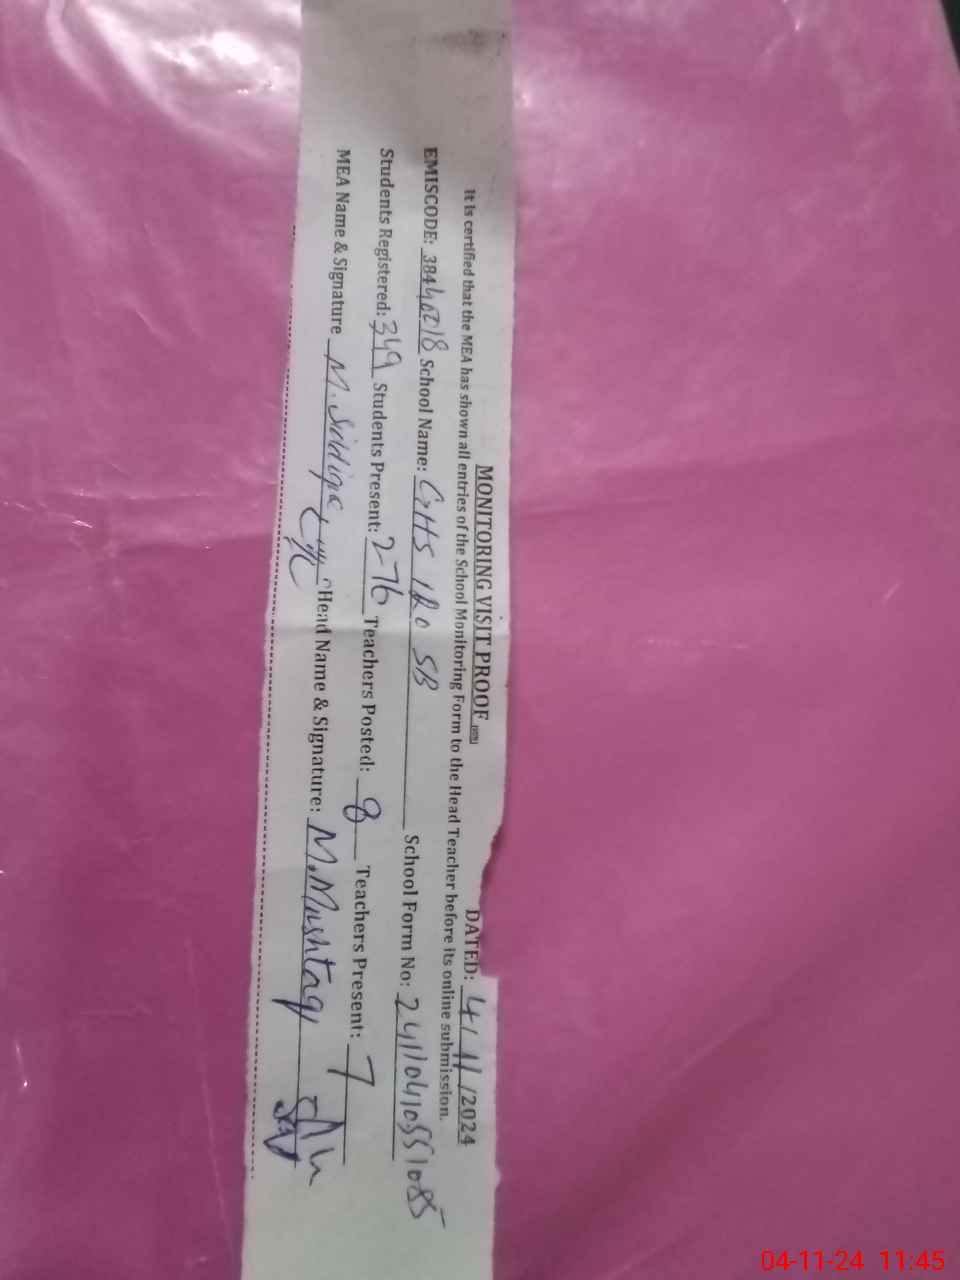 MONITORING VISIT PROOF
DATED: 4/11/2024
It is certified that the MEA has shown all entries of the School Monitoring Form to the Head Teacher before its online submission.
EMISCODE: 38440218 School Name: GHS 120 SB School Form No: 24110410551085
Students Registered: 349 Students Present: 276 Teachers Posted: 8 Teachers Present: 7
MEA Name & Signature M. Siddique Head Name & Signature: M. Mushtaq
04-11-24 11:45